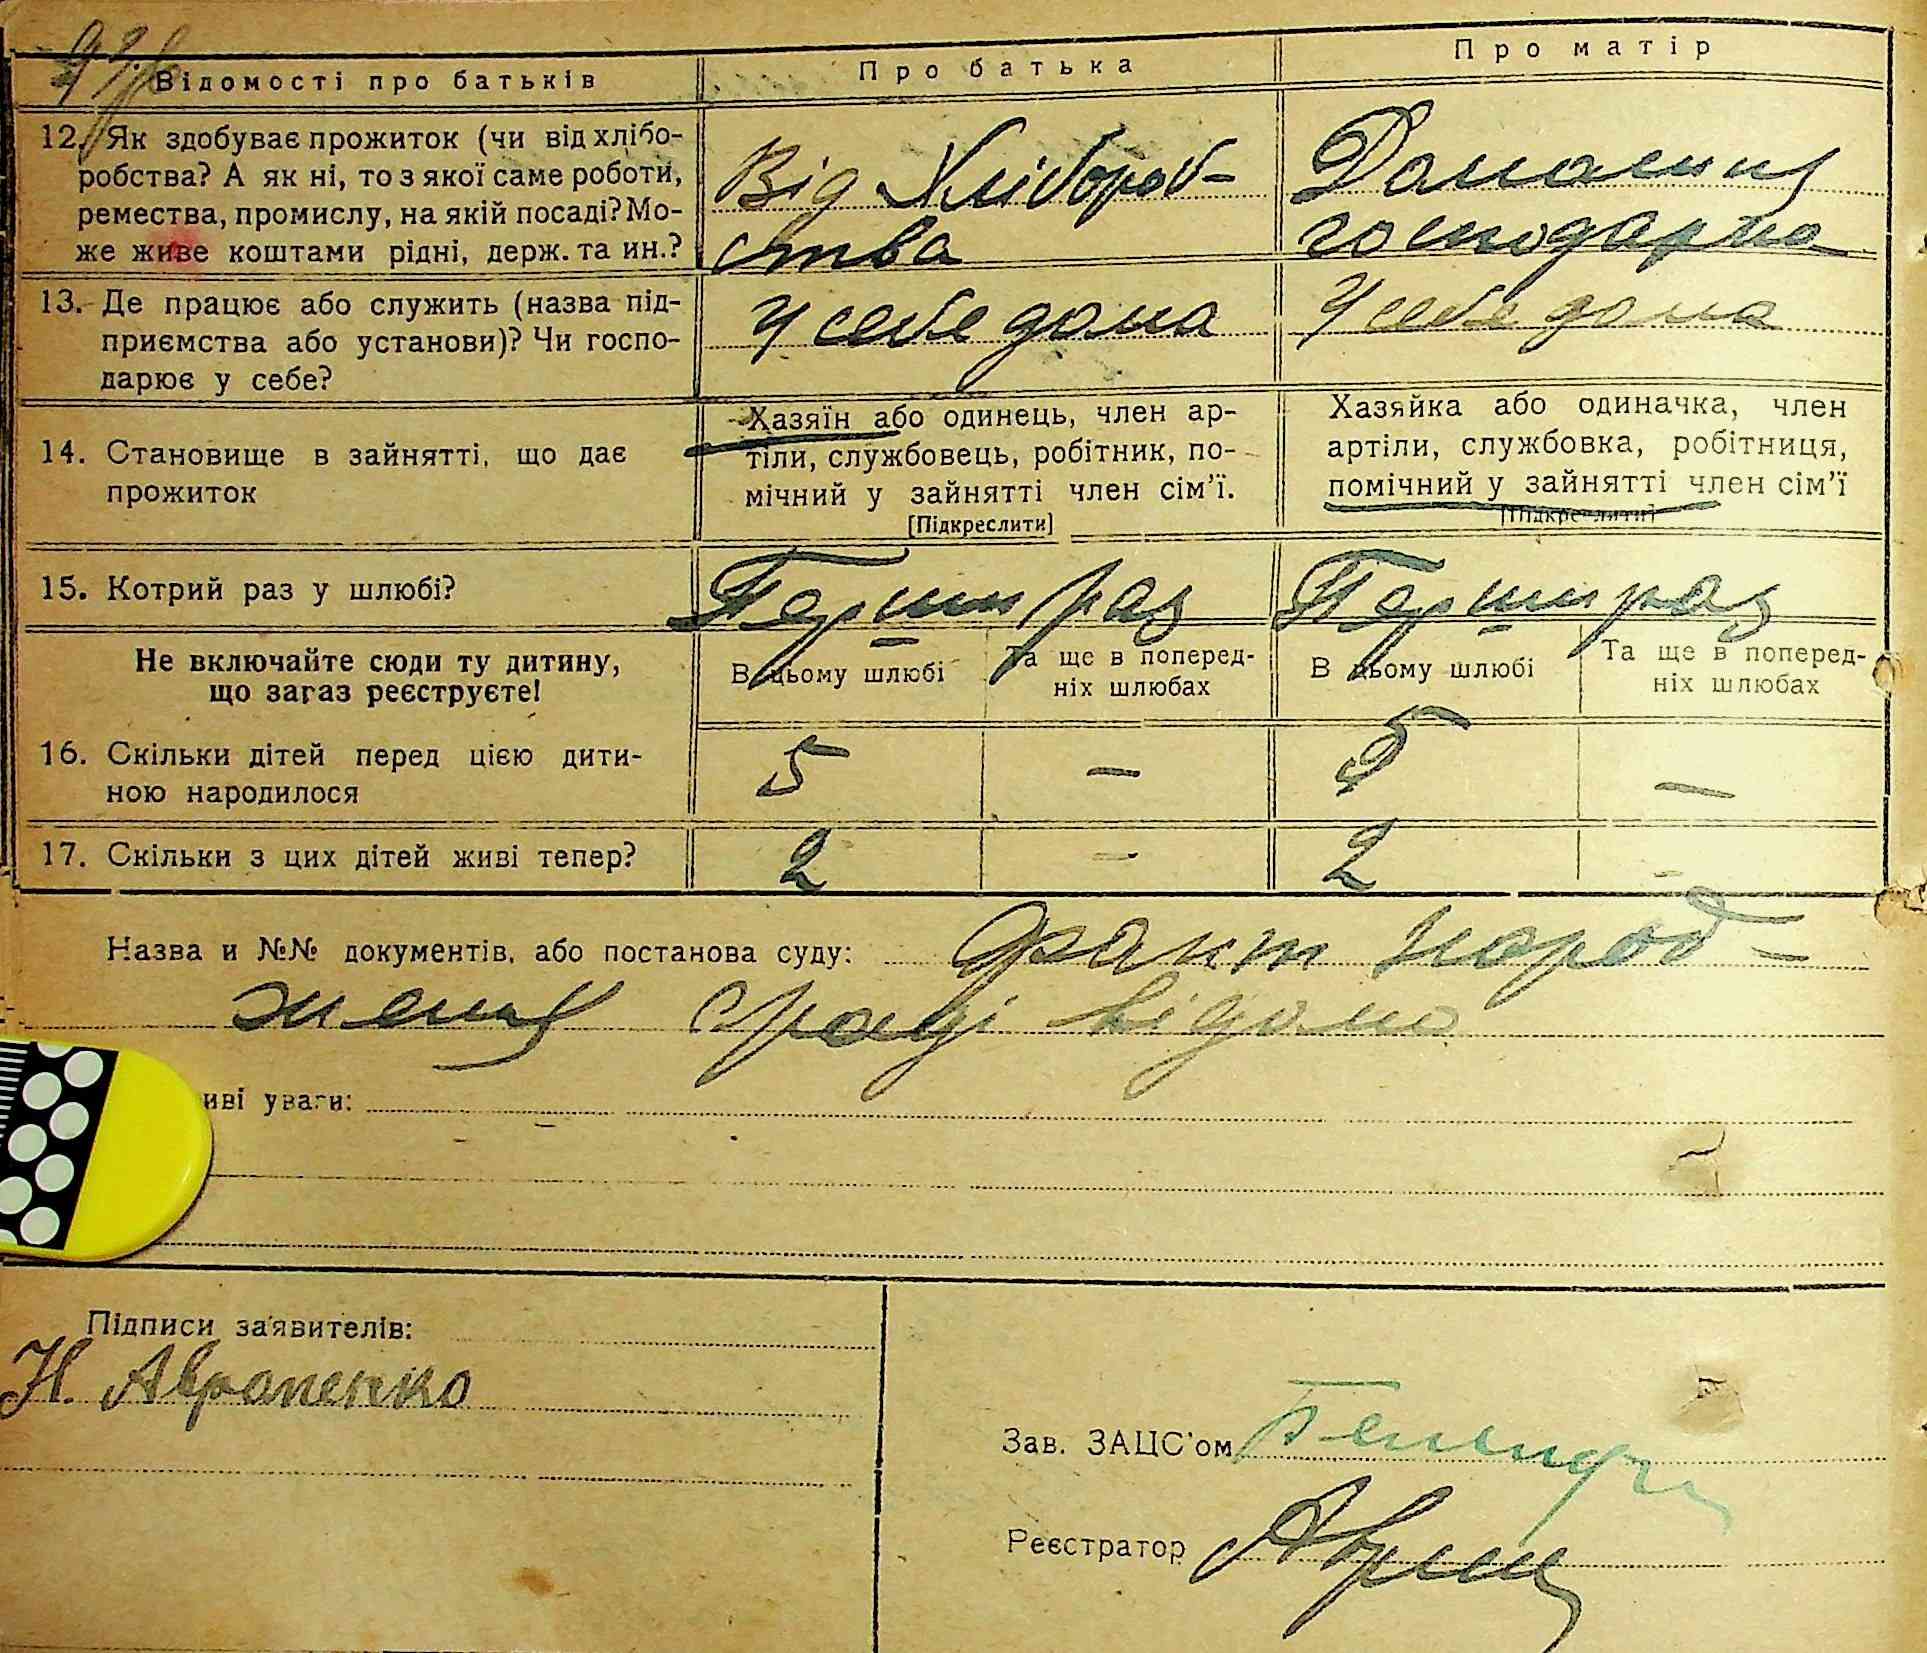 Відомості про батьків
Про батька
Про матір
12. Як здобуває прожиток (чи від хлібо-
робства? А як ні, то з якої саме роботи,
ремества, промислу, на якій посаді? Мо-
же живе коштами рідні, держ. та ин.?
Від Хлібороб-
ства
Домашня
господарка
13. Де працює або служить (назва під-
приємства або установи)? Чи госпо-
дарює у себе?
У себе дома
У себе дома
14. Становище в зайнятті, що дає
прожиток
Хазяїн або одинець, член ар-
тіли, службовець, робітник, по-
мічний у зайнятті член сім'ї.
[Підкреслити]
Хазяйка або одиначка, член
артіли, службовка, робітниця,
помічний у зайнятті член сім'ї
[Підкреслити]
15. Котрий раз у шлюбі?
Перши раз
Перши раз
Не включайте сюди ту дитину,
що зараз реєструєте!
В цьому шлюбі
Та ще в поперед-
ніх шлюбах
В цьому шлюбі
Та ще в поперед-
ніх шлюбах
16. Скільки дітей перед цією дити-
ною народилося
5 — 5 —
17. Скільки з цих дітей живі тепер?
2 — 2 -
Назва и №№ документів, або постанова суду: Факт народ-
ження сраді відомо
иві уваги:
Підписи заявителів:
Н. Авраменко
Зав. ЗАЦС'ом
Реєстратор